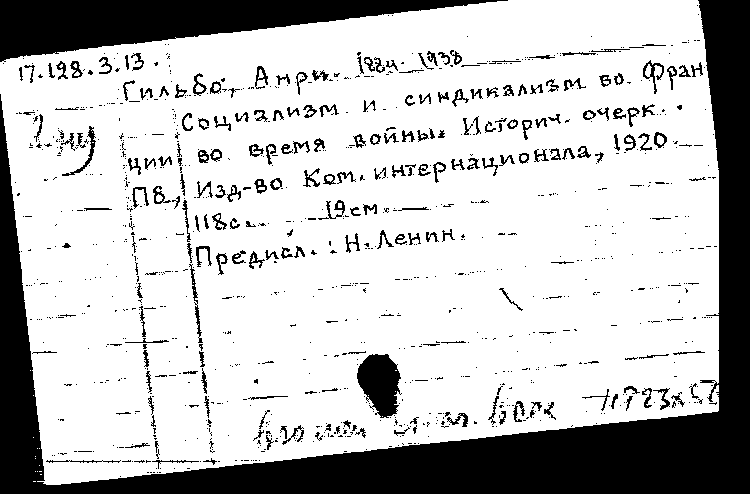 17.128.3.13.
Гильбо, Анри. 1884- 1938
Социализм и синдикализм во Фран
ции во время войны. Историч. очерк.
Пб, Изд-во Ком. интернационала, 1920.
118с. 19см.
Предисл.: Н. Ленин.